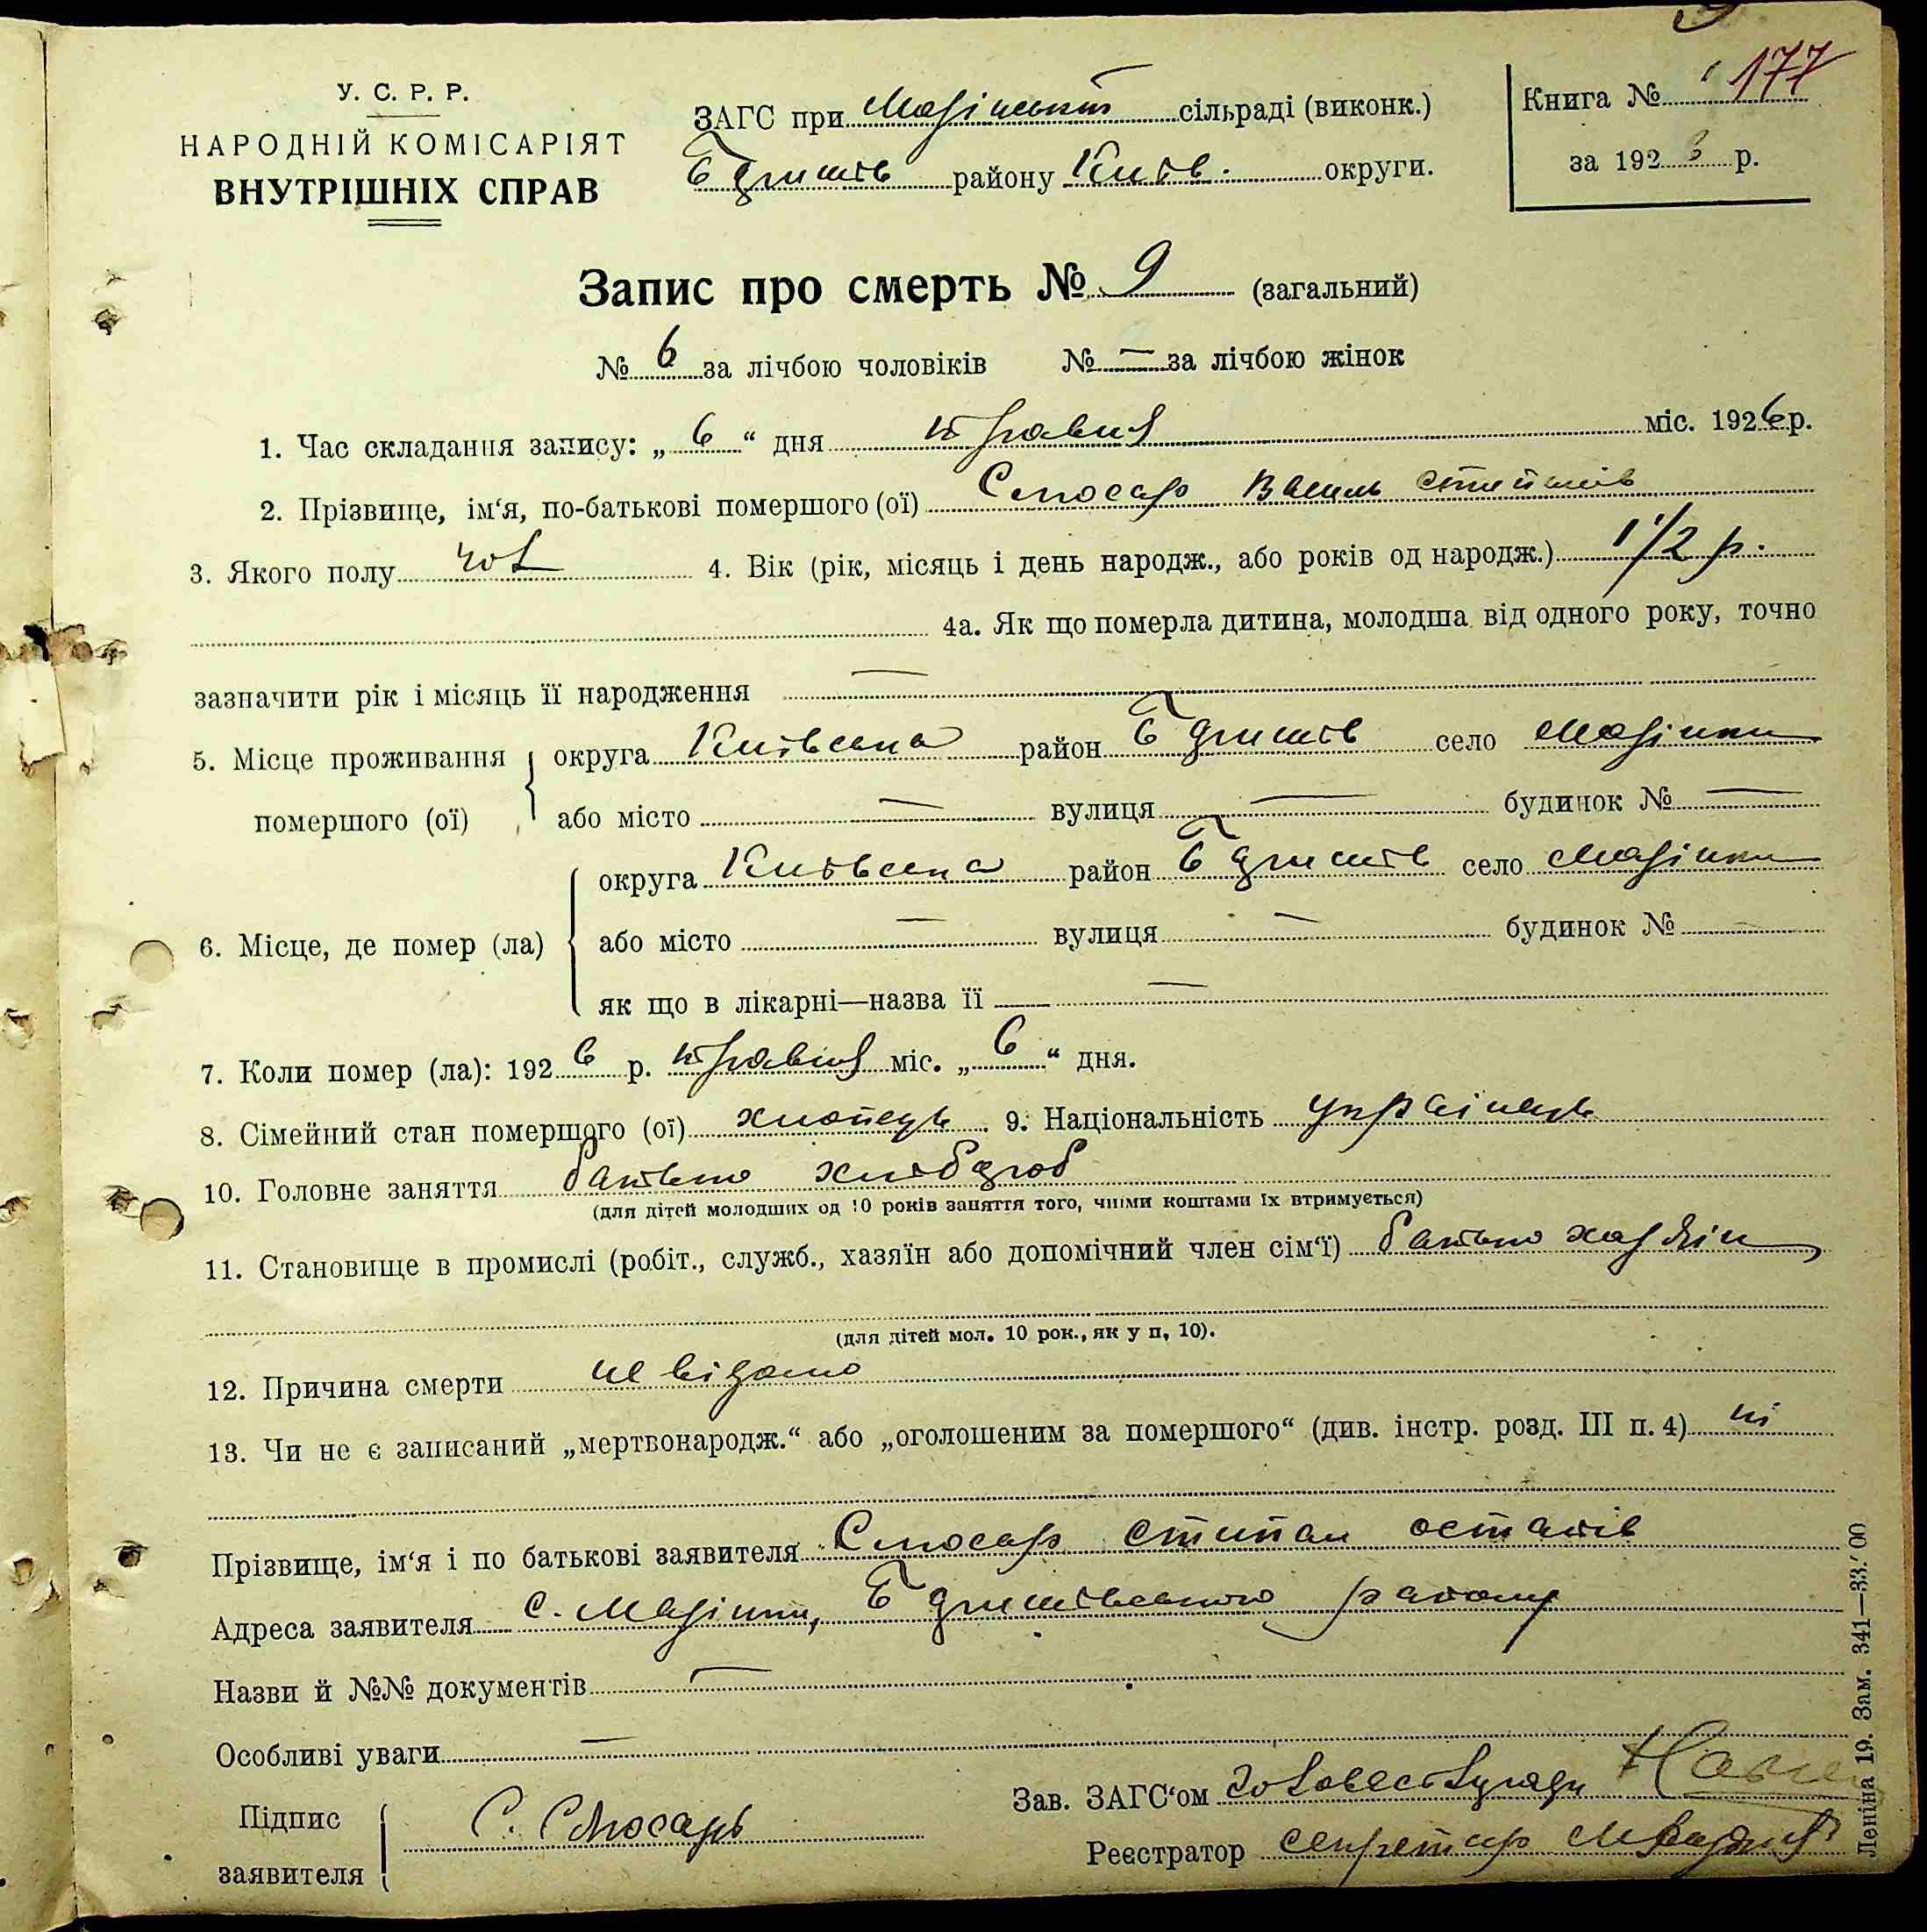 177
У. С. Р. Р.
НАРОДНІЙ КОМІСАРІЯТ
ВНУТРІШНІХ СПРАВ
ЗАГС при сільраді (виконк.)
району Київ. округи.
Книга № 1
за 1926 р.
Запис про смерть № 9 (загальний)
№ 6 за лічбою чоловіків № — за лічбою жінок
1. Час складання запису: „6“ дня травня міс. 1926 р.
2. Прізвище, ім‘я, по-батькові помершого (ої) Слюсар Василь
3. Якого полу чол 4. Вік (рік, місяць і день народж., або років од народж.) 1 1/2 р.
4а. Як що померла дитина, молодша від одного року, точно
зазначити рік і місяць її народження —
5. Місце проживання помершого (ої) округа Київська район село
або місто — вулиця — будинок № —
6. Місце, де помер (ла) округа Київська район село
або місто — вулиця — будинок № —
як що в лікарні—назва її —
7. Коли помер (ла): 1926 р. травня міс. „6“ дня.
8. Сімейний стан помершого (ої) хлопець 9. Національність українець
10. Головне заняття батько хлібороб
(для дітей молодших од 10 років заняття того, чиїми коштами їх втримується)
11. Становище в промислі (робіт., служб., хазяїн або допомічний член сім‘ї) батько хазяін
(для дітей мол. 10 рок., як у п, 10).
12. Причина смерти не відомо
13. Чи не є записаний „мертвонародж.“ або „оголошеним за помершого“ (див. інстр. розд. III п. 4) ні
Прізвище, ім‘я і по батькові заявителя Слюсар Стипан
Адреса заявителя с. району
Назви й №№ документів —
Особливі уваги —
Підпис заявителя С. Слюсарь
Зав. ЗАГС‘ом
Реєстратор секретар
Леніна 19. Зам. 341—33.'00